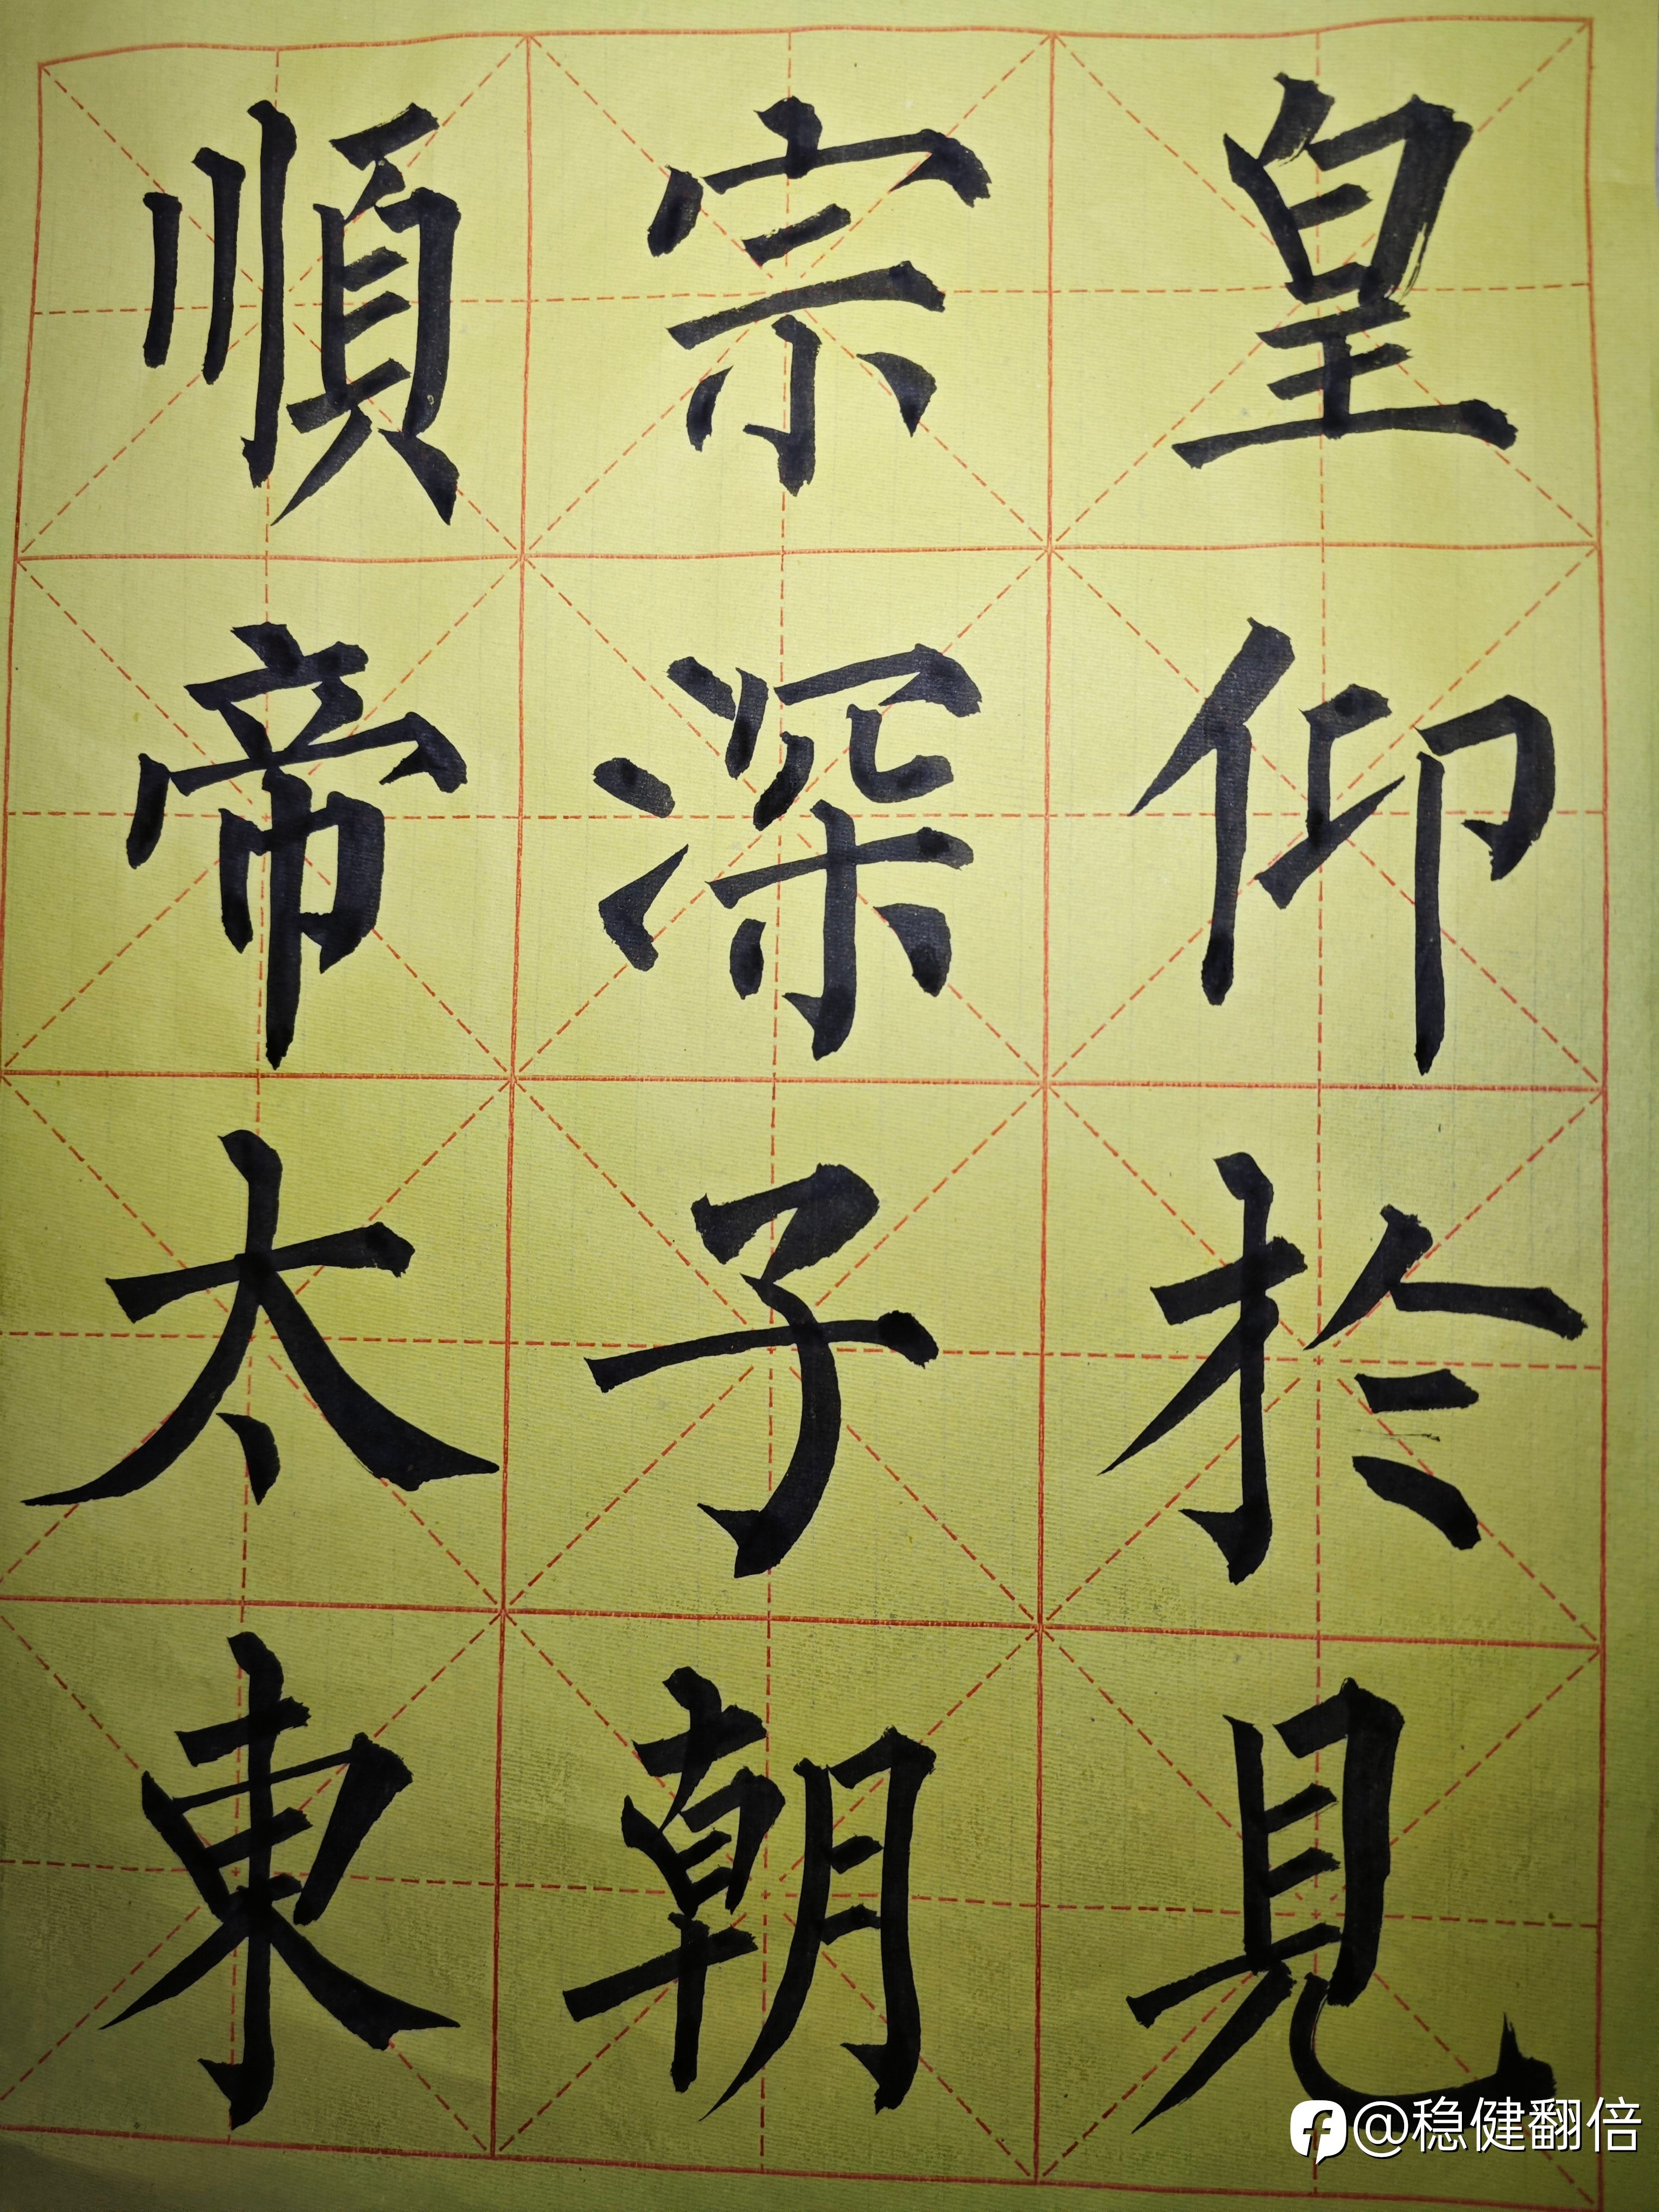 皇仰於見
宗深子朝
順帝太東
@稳健翻倍